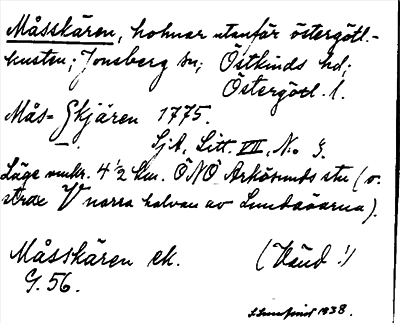 Måsskären, holmar utanför östergötl.-
kusten; Jonsberg sn; Östkinds hd;
Östergötl. l.
Mås-Skjären 1775.
SjA, Litt. VII, No 3.
Läge omkr. 4 1/2 km. ÖNÖ Arkösunds stn (o.
strax V norra halvan av Lundaöarna).
Måsskären ek.
(Vänd!)
G. 56.
1938.